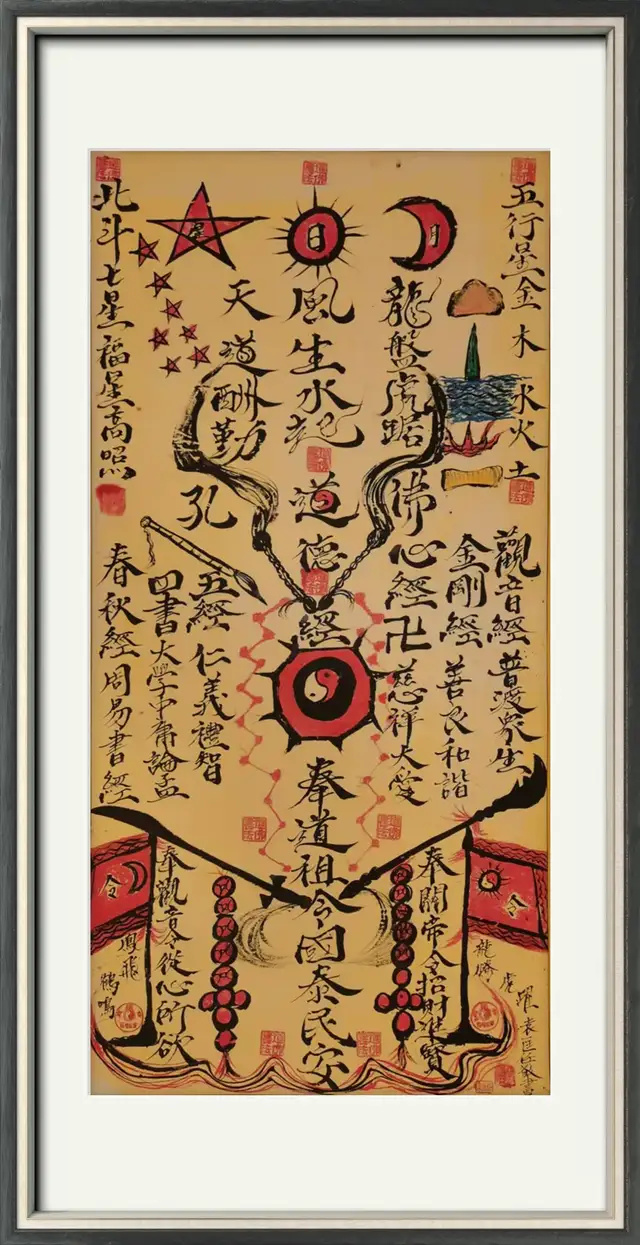 五行星金木水火土
月
龍盤虎踞
日
風生水起
星
天道酬勤
北斗七星福星高照
觀音經普渡眾生
金剛經善良和諧
佛心經卍慈祥大愛
道德經
孔
五經仁義禮智
四書大學中庸論孟
春秋經周易書經
奉道祖令國泰民安
奉關帝令招財進寶
令
龍騰虎躍
奉觀音令從心所欲
令
鳳飛鶴鳴